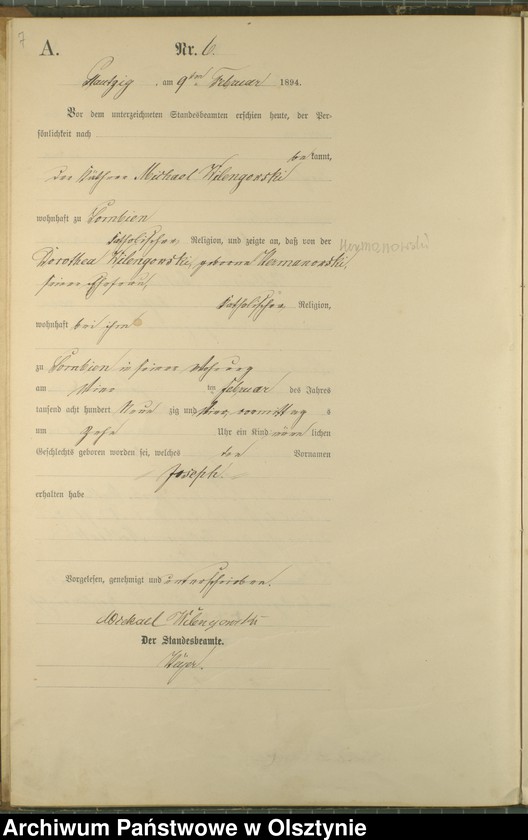 7
A.
Nr. 6.
am 9ten Februar 1894.
Vor dem unterzeichneten Standesbeamten erschien heute, der Per-
sönlichkeit nach
be kannt,
der Käthner Michael Wilengowski
wohnhaft zu Combien
katholischer Religion, und zeigte an, daß von der
Dorothea Wilengowski, geborene Hermanowski,
Hermanowski
seiner Ehefrau,
katholischer Religion,
wohnhaft bei ihm
zu Combien in seiner Wohnung
am ten Februar des Jahres
tausend acht hundert neun zig und vier, vormittag s
um Uhr ein Kind männ lichen
Geschlechts geboren worden sei, welches den Vornamen
Joseph.
erhalten habe
Vorgelesen, genehmigt und unterschrieben.
Michael Wilengowski
Der Standesbeamte.
Archiwum Państwowe w Olsztynie